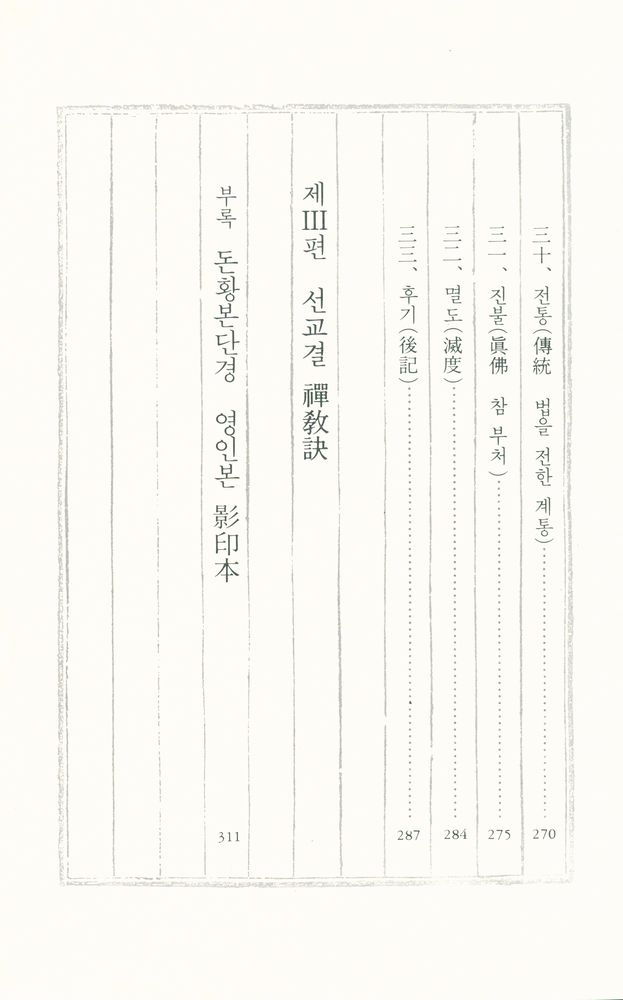 三十、전통(傳統 법을 전한 계통)……270
三一、진불(眞佛 참 부처)……275
三二、멸도(滅度)……284
三三、후기(後記)……287
제III편 선교결 禪教訣
부록 돈황본단경 영인본 影印本 311